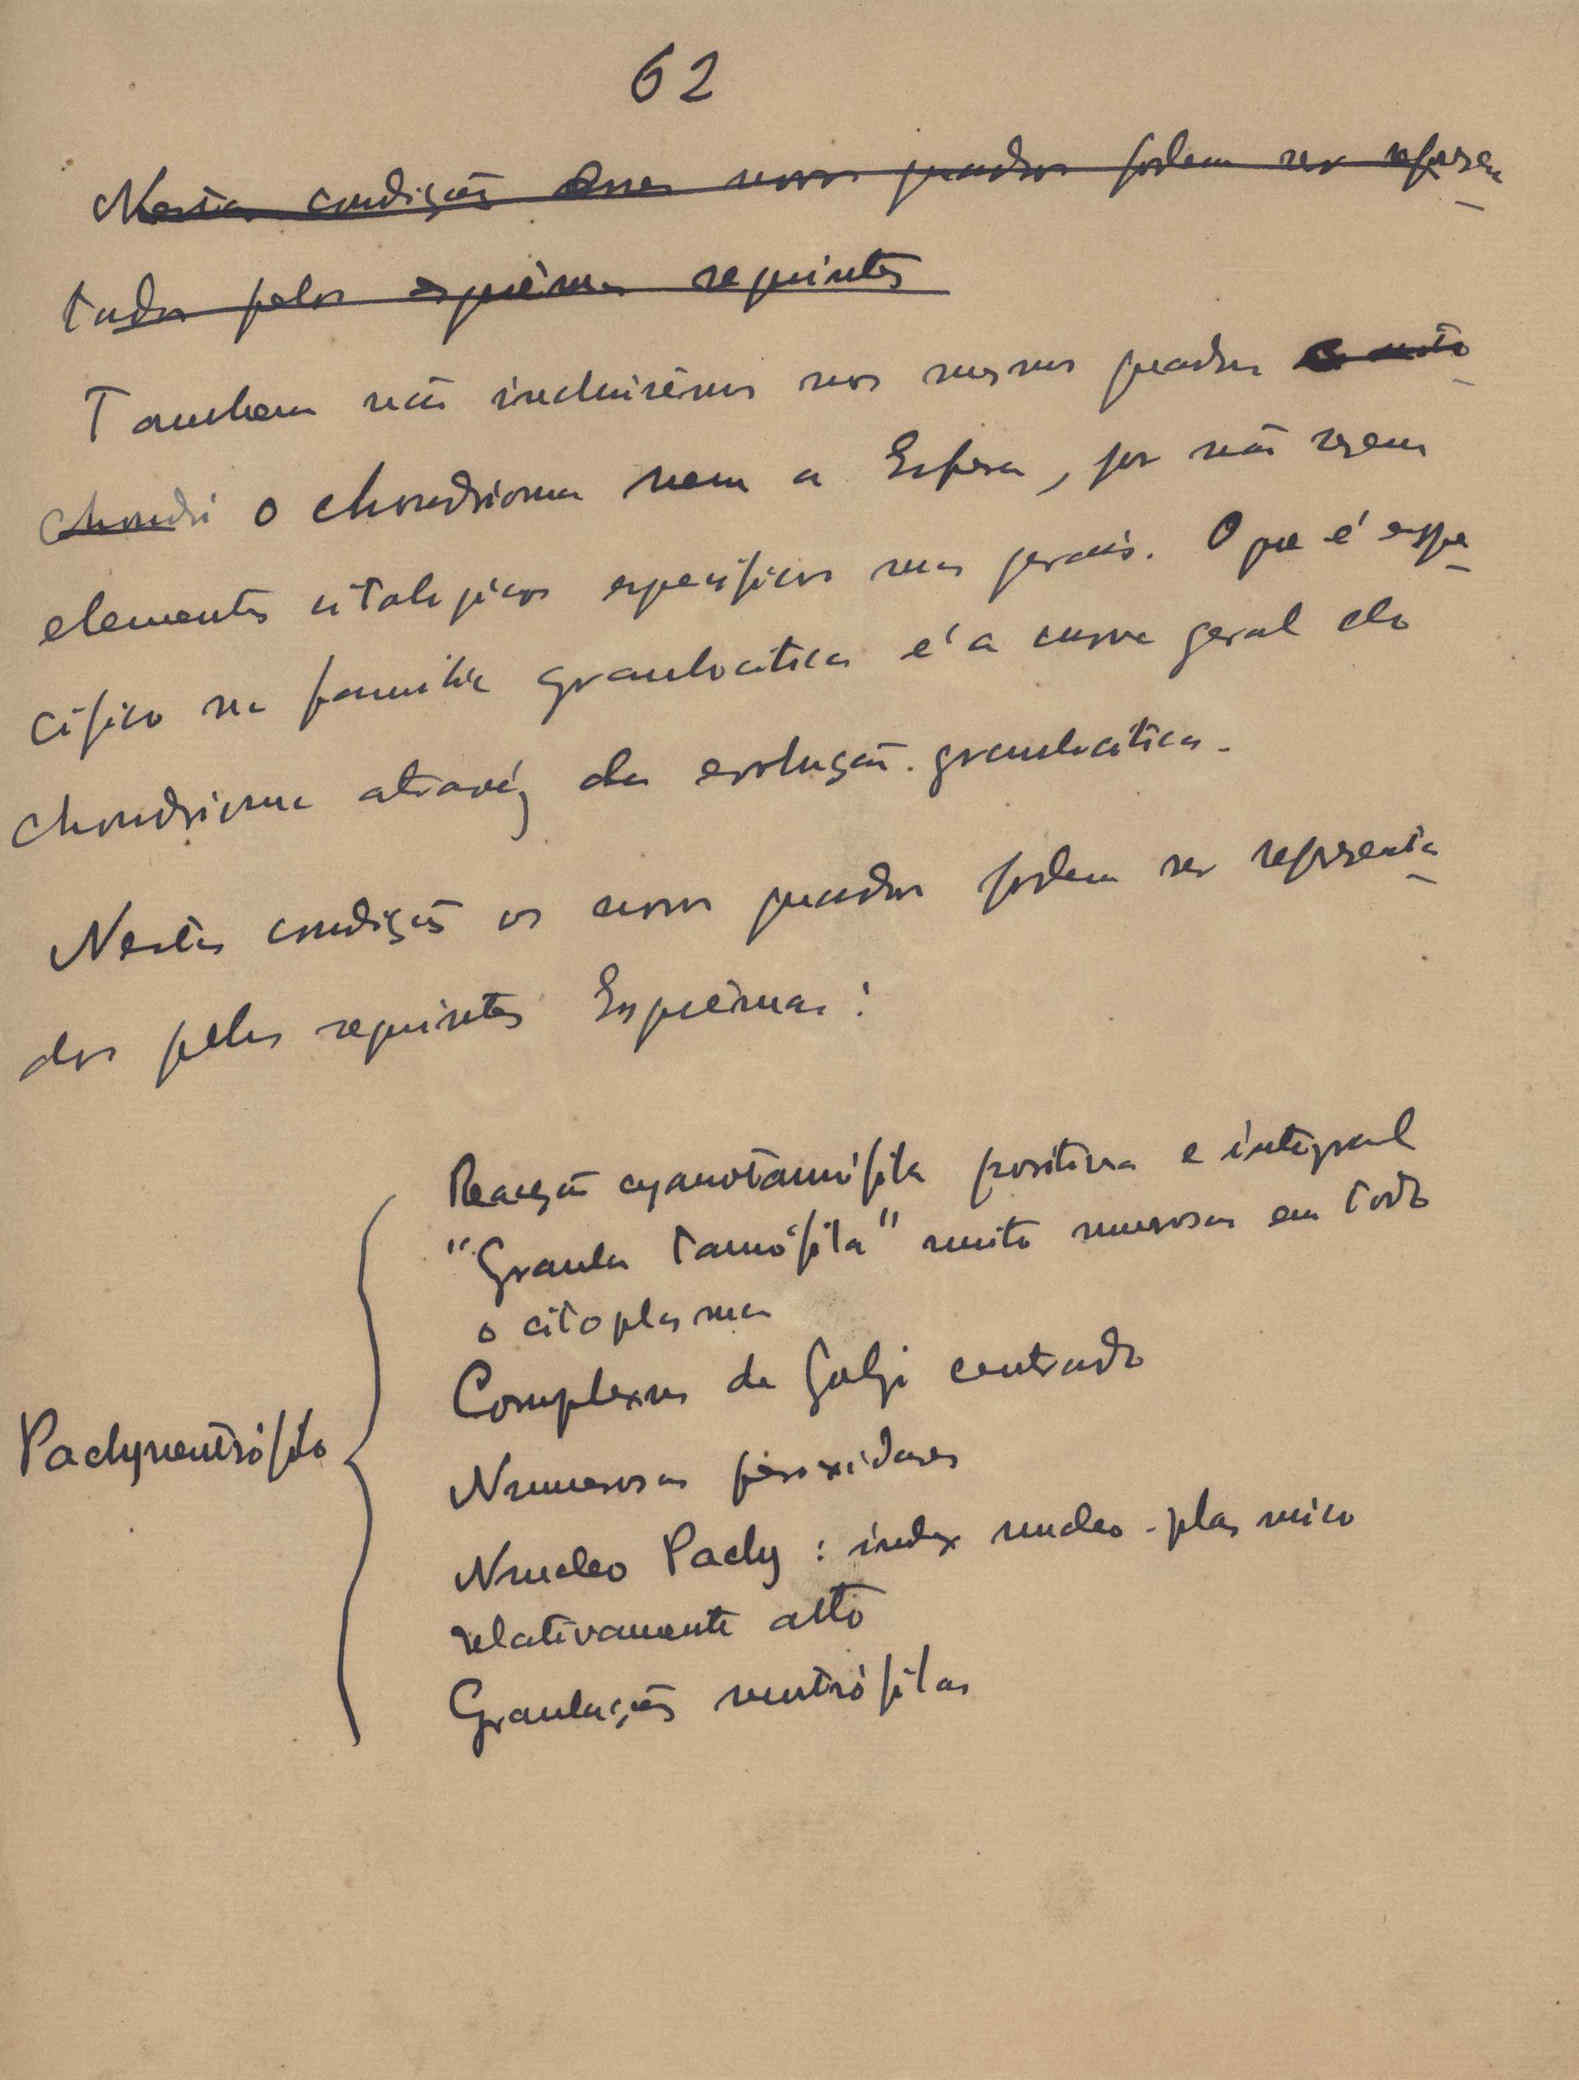 62
Nestas condições esses novos quadros podem ser represen-
tados pelos esquêmas seguintes
Tambem não incluirêmos nos mesmos quadros
chondri o chondrioma nem a Esfera, por não serem
elementos citologicos especificos mas geraes. O que é espe-
cifico na familia granulocitica é a curva geral do
chondrioma atravéz da evolução granulocitica.
Nestas condições os novos quadros podem ser representa-
dos pelos seguintes Esquêmas:
Reacção cyanotanófila positiva e integral
"Granula tanófila" muito numerosas em todo
o citoplasma
Complexus de Golgi centrado
Pachyneutrófilo
Numerosas peroxidases
Nucleo Pachy: index nucleo-plasmico
relativamente alto
Granulações neutrófilas